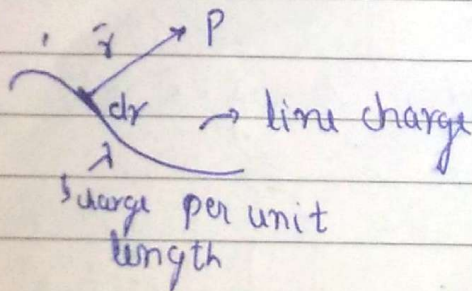 r̄ P
dr → line charge
λ
↳ charge per unit
length